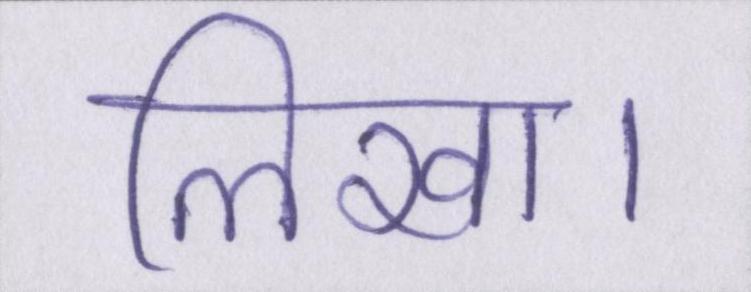 लिखा।